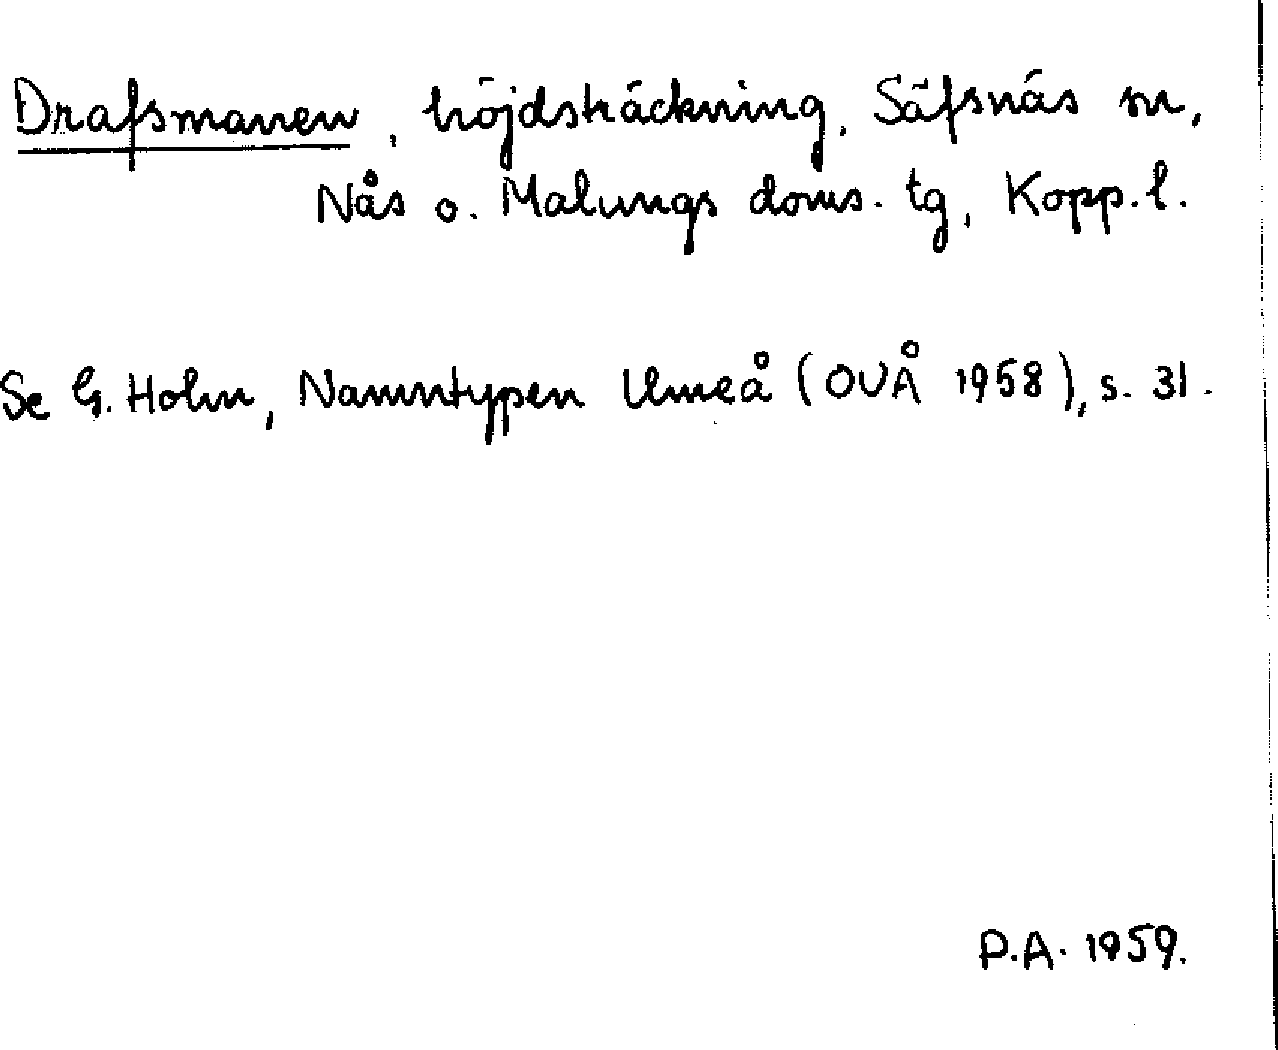 Drafsmanen, höjdsträckning, Säfsnäs sn,
Nås o. Malungs doms. tg, Kopp. l.
Se G. Holm, Namntypen Umeå (OUÅ 1958), s. 31.
P.A. 1959.